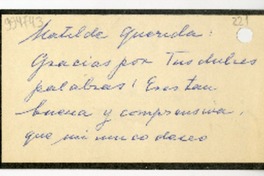 939743
221
Matilde Querida:
Gracias por Tus dulces
palabras! Eres tan
buena y comprensiva,
que mi unico deseo